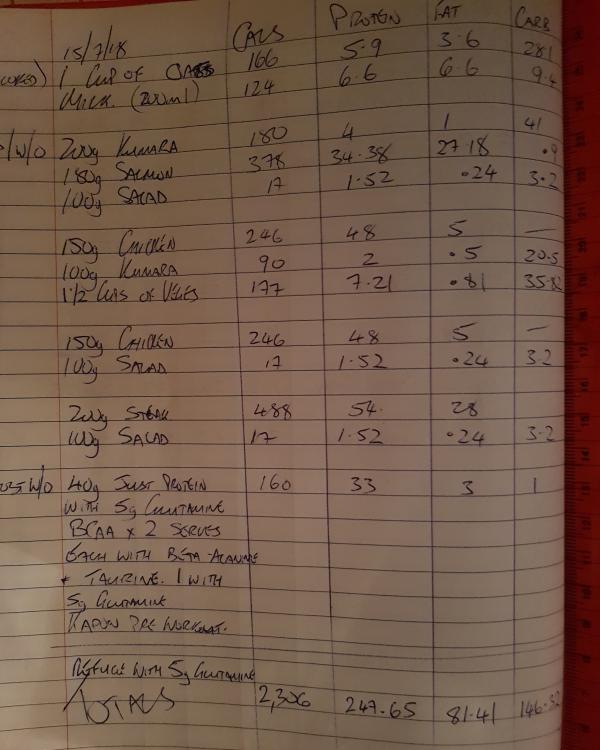 CALS PROTEIN FAT CARB
15/7/18
1 CUP OF OATS 166 5.9 3.6 28.1
MILK (200ml) 124 6.6 6.6 9.4
W/O 200g KUMARA 180 4 1 41
180g SALMON 378 34.38 27.18 .9
100g SALAD 17 1.52 .24 3.2
150g CHICKEN 246 48 5 —
100g KUMARA 90 2 .5 20.5
1 1/2 CUPS OF VEGES 177 7.21 .81
150g CHICKEN 246 48 5 —
100g SALAD 17 1.52 .24 3.2
200g STEAK 488 54 28
100g SALAD 17 1.52 .24 3.2
W/O 40g JUST PROTEIN 160 33 3 1
WITH 5g GLUTAMINE
BCAA x 2 SERVES
EACH WITH BETA-ALANINE
+ TAURINE. 1 WITH
5g GLUTAMINE
PRE WORKOUT.
WITH 5g GLUTAMINE
TOTALS 2,306 247.65 81.41